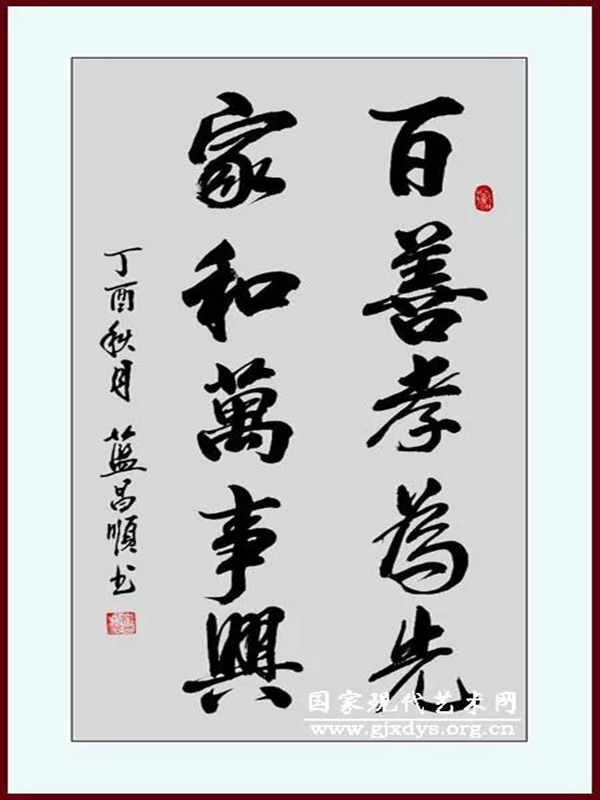 百善孝為先
家和萬事興
丁酉秋月 蓝昌順书
国家现代艺术网
www.gjxdys.org.cn